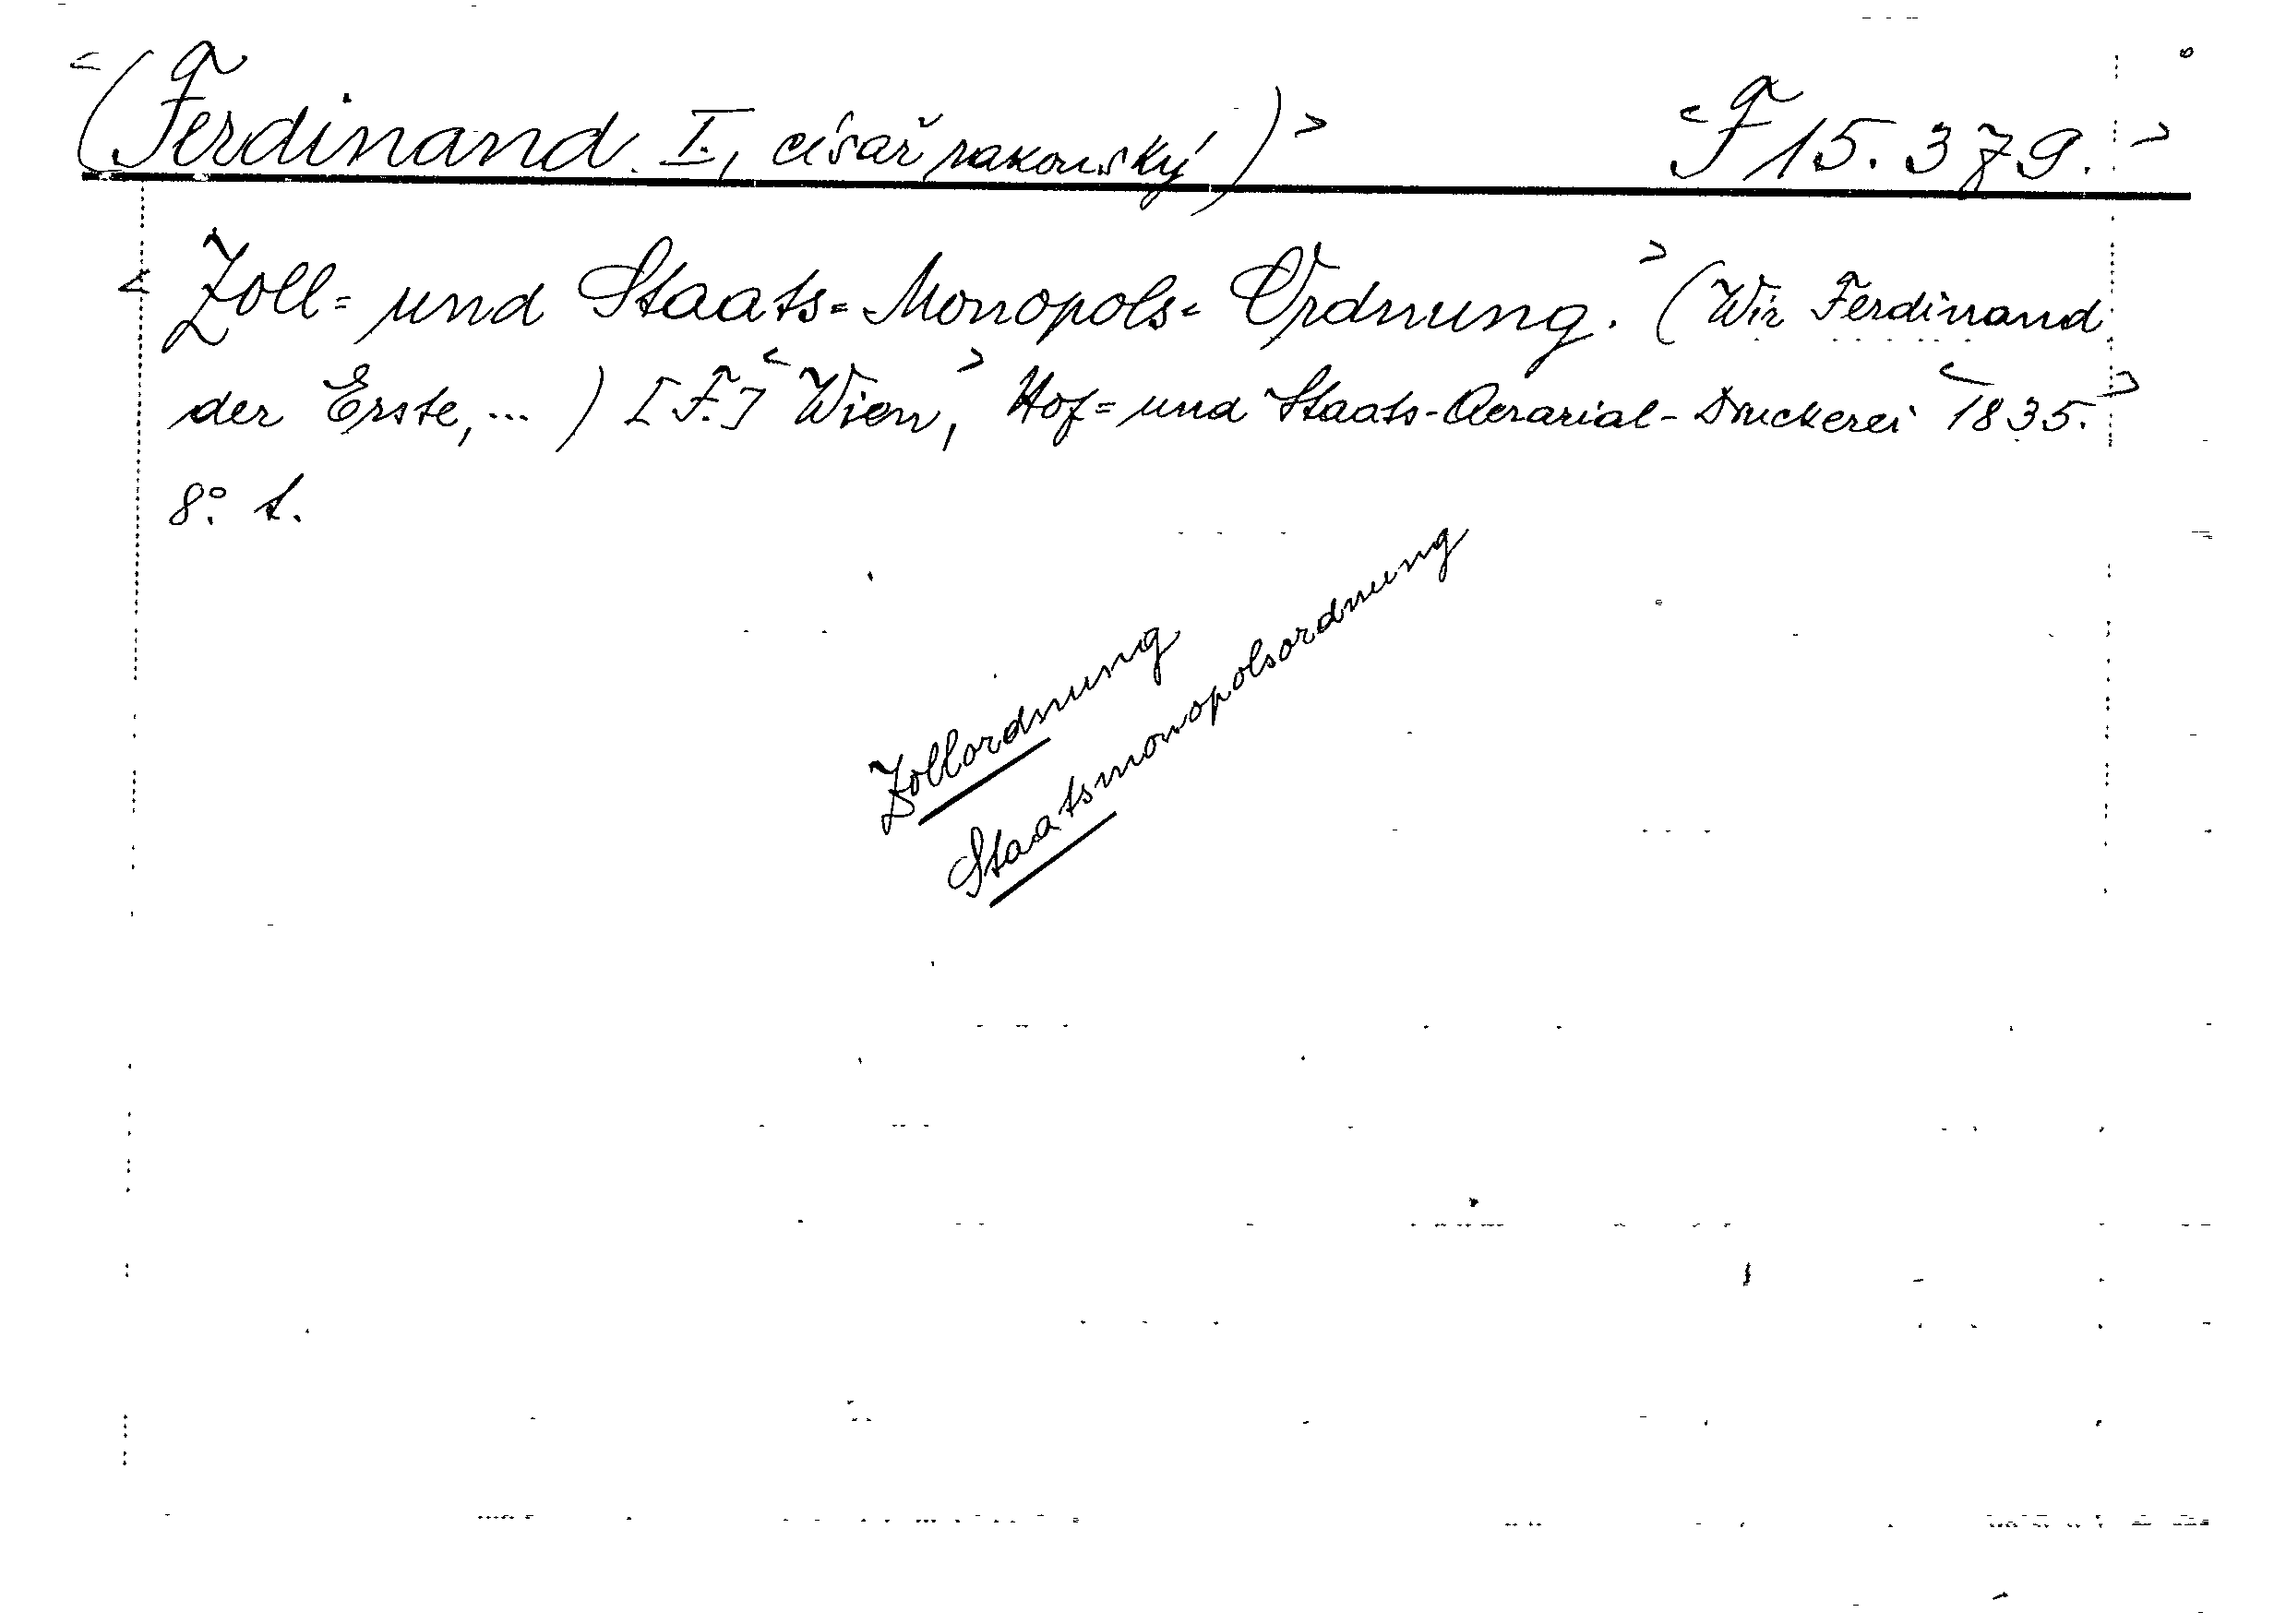 <(Ferdinand I., císař rakouský)> <F 15.379.>
<Zoll= und Staats=Monopols=Ordnung.> (Wir Ferdinand
der Erste, ...) [F.] <Wien,> Hof= und Staats-Aerarial-Druckerei <1835.>
8°. t.
Zollordnung
Staatsmonopolsordnung